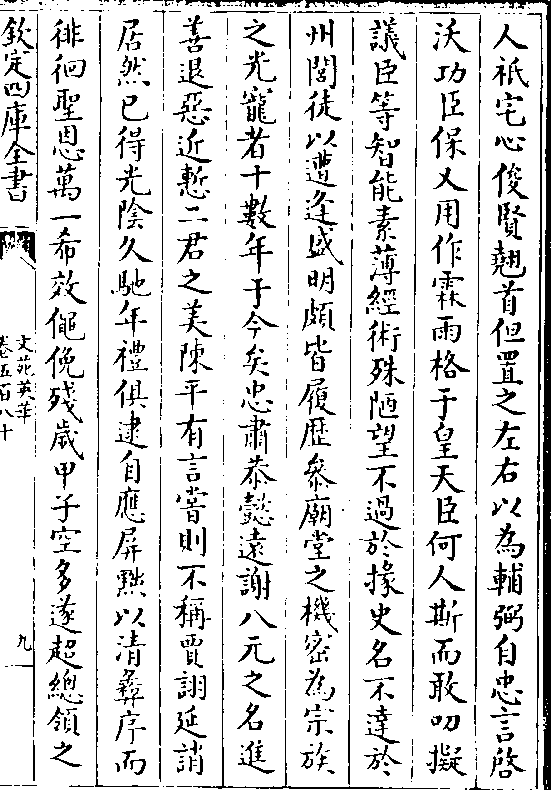 人祇宅心俊賢翹首但置之左右以為輔弼自忠言啓
沃功臣保乂用作霖雨格于皇天臣何人斯而敢叨擬
議臣等智能素薄經術殊陋望不過於掾史名不達於
州閭徒以遭逢盛明頗皆履歴叅廟堂之機密為宗族
之光寵者十數年于今矣忠肅恭懿遠謝八元之名進
善退惡近慙二君之美陳平有言嘗則不稱賈詡延誚
居然已得光陰久馳年禮俱逮自應屏黜以清彞序而
徘徊聖恩萬一希效僶俛殘歲甲子空多遂超總領之
欽定四庫全書
文苑英華
卷五百八十
九